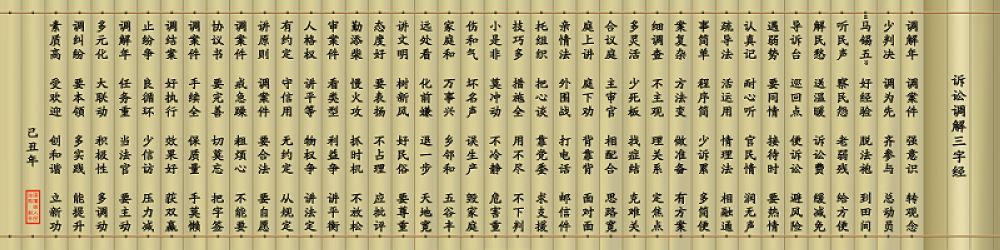 诉讼调解三字经
调解年 调案件 强意识 转观念
少判决 调为先 齐参与 总动员
马锡五 好经验 脱法袍 到田间
听民声 察民怨 老弱残 给方便
解民愁 送温暖 诉讼费 缓减免
导诉台 巡回点 便诉讼 避风险
遇弱势 要同情 接待时 要热情
认真记 耐心听 官民情 润无声
疏导法 活运用 情理法 相融通
事简单 程序简 少诉累 多简便
案复杂 方法变 做准备 有方案
细调查 不主观 理关系 定焦点
多灵活 少死板 找症结 克难关
合议庭 主审官 相配合 思路宽
庭上讲 庭下功 背靠背 面对面
亲情法 外围战 打电话 邮信件
托组织 把心谈 靠党委 求支援
技巧多 措施全 用不尽 不下判
小是非 莫冲动 不冷静 危害重
伤和气 坏名声 误生产 毁家庭
家庭和 万事兴 乡邻和 五谷丰
远处看 化前嫌 退一步 天地宽
讲文明 树新风 好民俗 要尊重
态度好 要表扬 不占理 应批评
勤添柴 慢火攻 抓时机 不放松
审案件 看类型 利益争 讲平衡
人格权 讲平等 物权争 讲法定
有约定 守信用 无约定 从规定
讲原则 调案件 要合法 要自愿
调案件 戒急躁 粗烦心 不能要
协议书 要完善 切莫忘 把字签
调案件 手续全 保质量 手莫懒
调结案 好执行 效果好 获双赢
止纷争 良循环 少信访 压力减
调解年 任务重 当法官 要主动
多元化 大联动 积极性 多调动
调纠纷 要本领 多实践 能提升
素质高 受欢迎 创和谐 立新功
己丑年